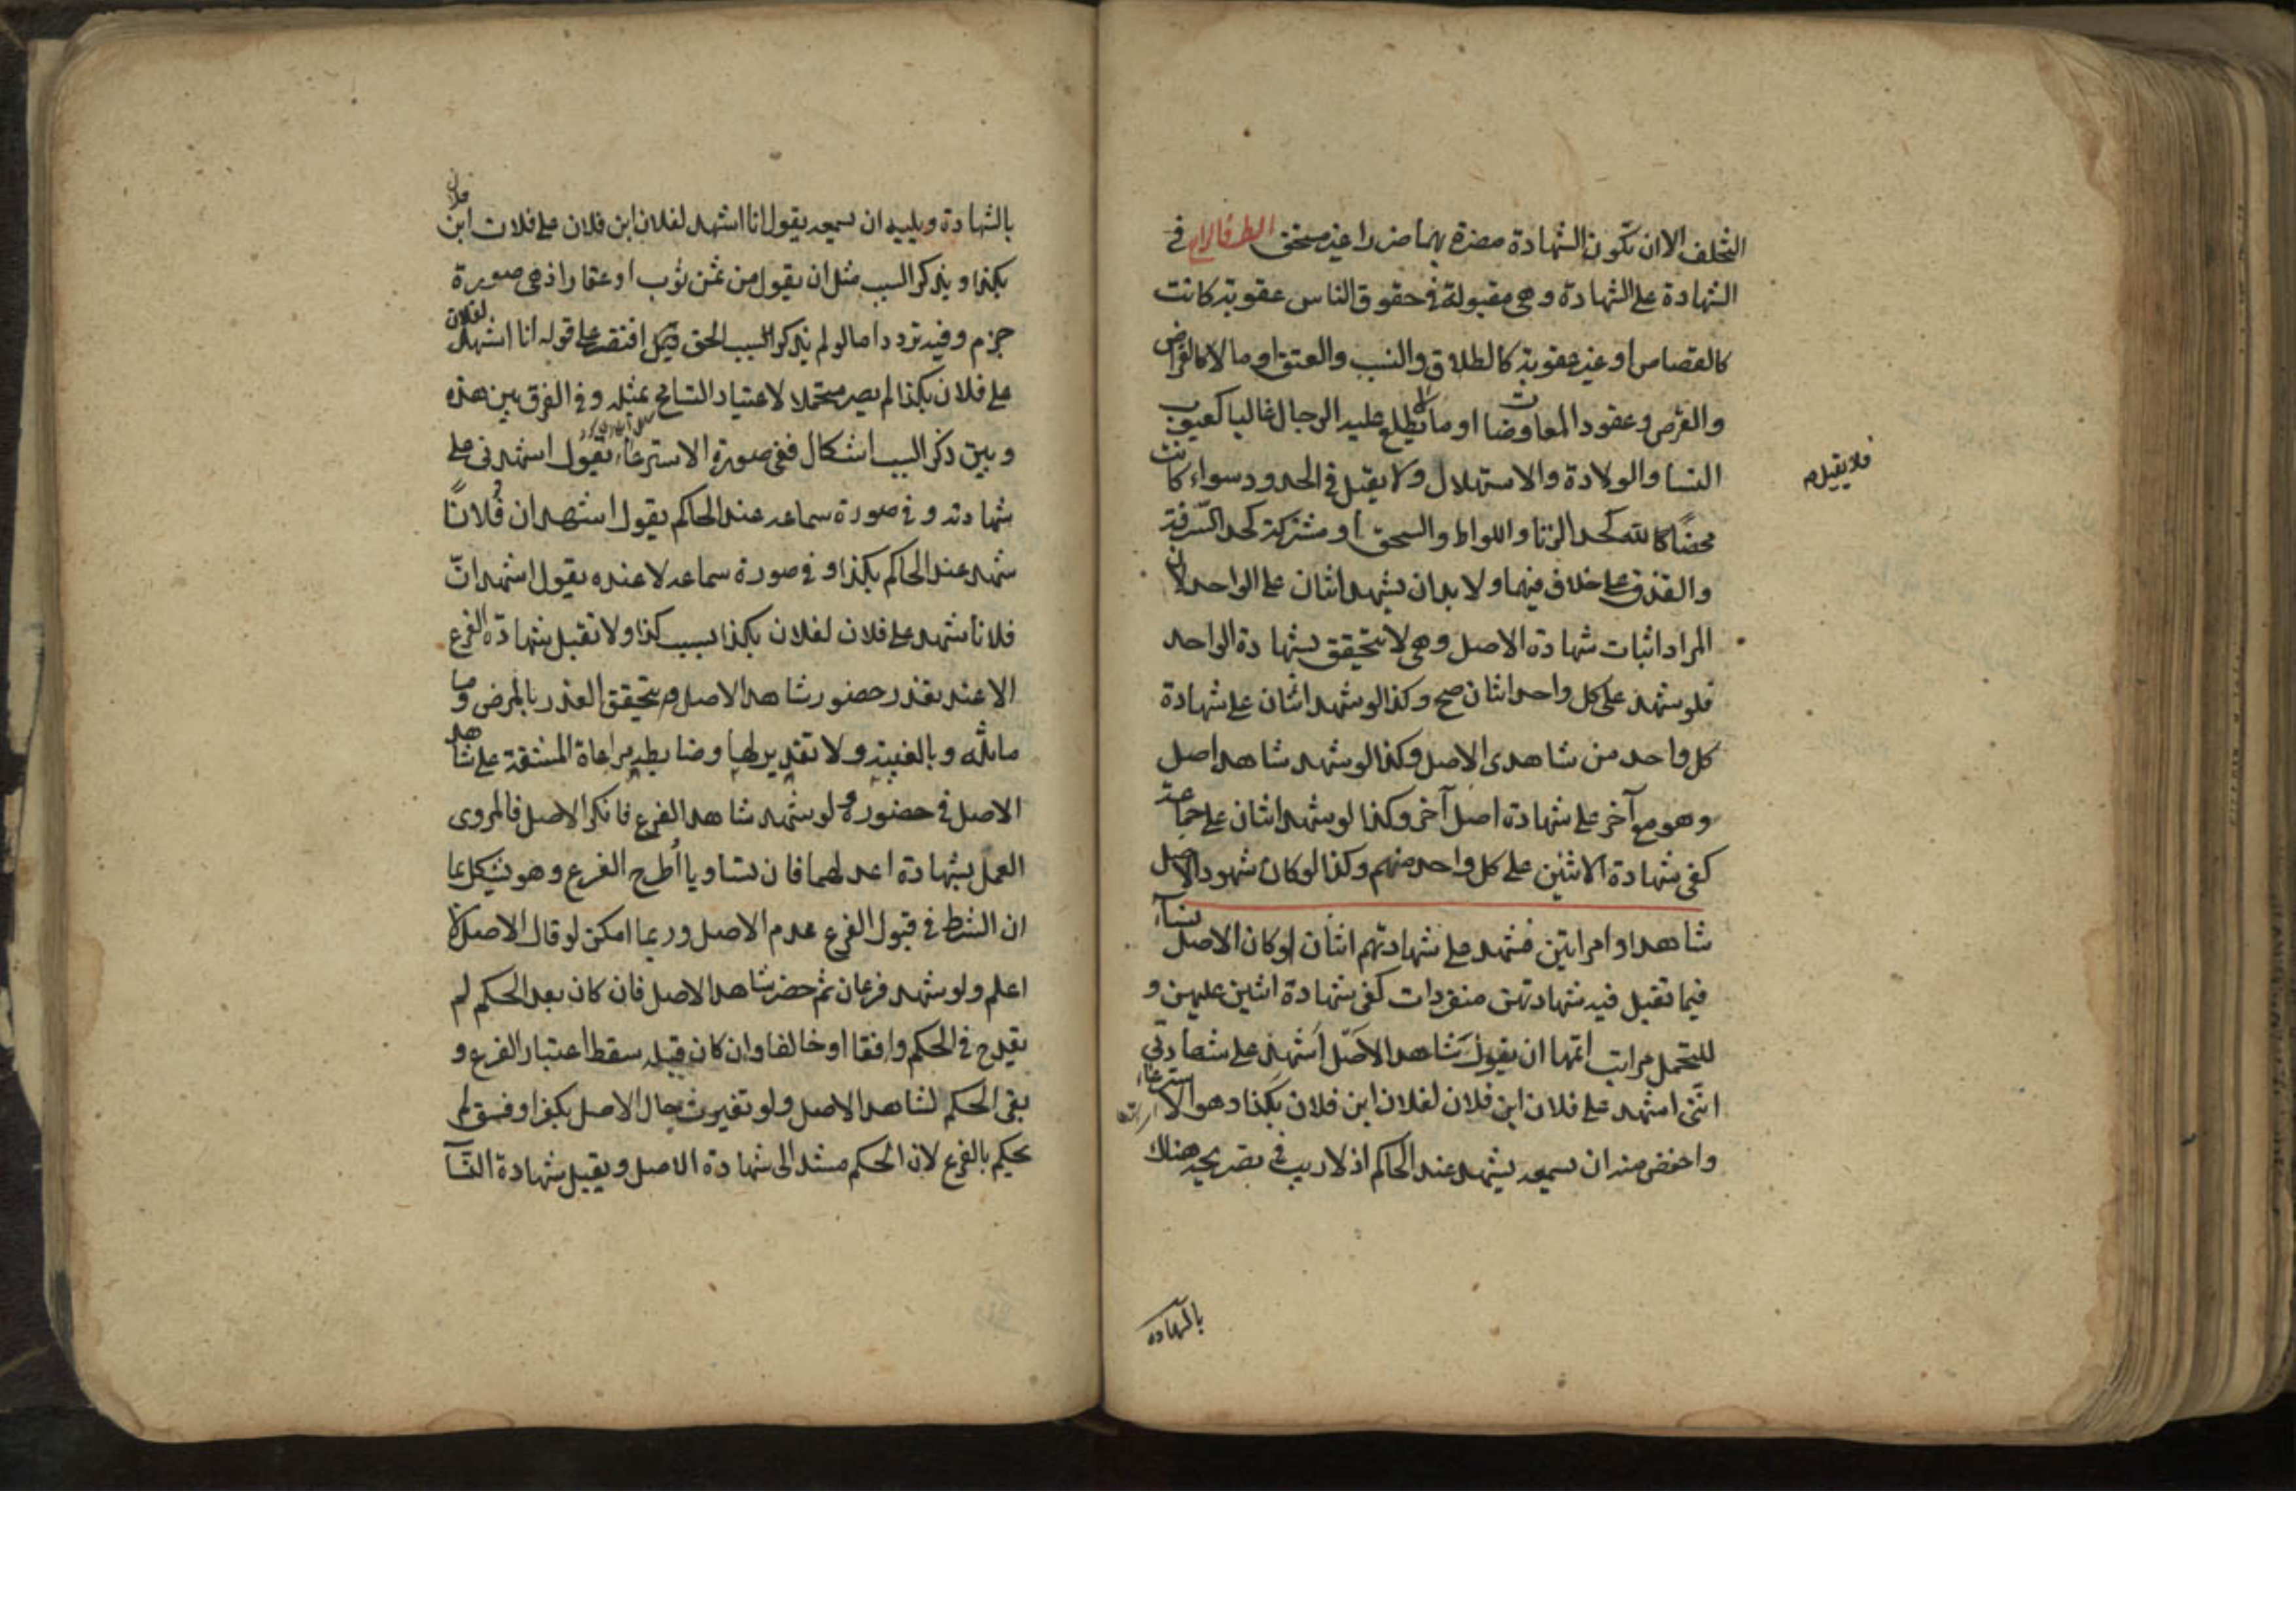 التخلف الا ان تكون الشهادة مضرة بهما ضررا غير مستحق الطرف الرابع في
الشهادة على الشهادة وهي مقبولة في حقوق الناس عقوبة كانت
كالقصاص او غير عقوبة كالطلاق والنسب والعتق او مالا كالقراض
والقرض وعقود المعاوضات او ما لا يطلع عليه الرجال غالبا كعيوب
النسا والولادة والاستهلال ولا يقبل في الحدود سواء كانت
فلا يقبل م
محضا لله كحد الزنا واللواط والسحق او مشتركة كحد السرقة
والقذف على خلاف فيهما ولا بد ان يشهد اثنان على الواحد لان
المراد اثبات شهادة الاصل وهي لا يتحقق بشهادة الواحد
فلو شهد على كل واحد اثنان صح وكذا لو شهد اثنان على شهادة
كل واحد من شاهدى الاصل وكذا لو شهد شاهد اصل
وهو مع آخر على شهادة اصل آخر وكذا لو شهد اثنان على جماعة
كفى شهادة الاثنين على كل واحد منهم وكذا لو كان شهود الاصل
شاهدا وامراتين فشهد على شهادتهم اثنان او كان الاصل نساء
فيما تقبل فيه شهادتهن منفردات كفى شهادة اثنين عليهن و
للتحمل مراتب اتمها ان يقول شاهد الاصل اشهد على شهادتي
انني اشهد على فلان ابن فلان لفلان ابن فلان بكذا وهو الاسترعاء
واخفض منه ان يسمعه يشهد عند الحاكم اذ لا ريب في تصريحه هناك
بالشهادة
بالشهادة ويليه ان يسمعه يقول انا اشهد لفلان ابن فلان على فلان ابن فلان
بكذا ويذكر السبب مثل ان يقول من ثمن ثوب او عقار اذ هي صورة
جزم وفيه تردد اما لو لم يذكر السبب الحق بل اقتصر على قوله انا اشهد لفلان
على فلان بكذا لم يصر متحملا لاعتياد التسامح بمثله وفي الفرق بين هذه
وبين ذكر السبب اشكال ففي صورة الاسترعاء يقول اشهدني على
شهادته وفي صورة سماعه عند الحاكم يقول اشهد ان فلانا
شهد عند الحاكم بكذا وفي صورة سماعه لا عنده يقول اشهد ان
فلانا شهد على فلان لفلان بكذا بسبب كذا ولا تقبل شهادة الفرع
الا عند تعذر حضور شاهد الاصل ويتحقق العذر بالمرض وما
ماثله وبالغيبة ولا تقدير لها وضابطه مراعاة المشقة على شاهد
الاصل في حضوره ولو شهد شاهد الفرع فانكر الاصل فالمروى
العمل بشهادة اعدلهما فان تساويا أطرح الفرع وهو يشكل بما
ان الشرط في قبول الفرع عدم الاصل وربما امكن لو قال الاصل لا
اعلم ولو شهد فرعان ثم حضر شاهد الاصل فان كان بعد الحكم لم
يقدح في الحكم وافقا او خالفا وان كان قبله سقط اعتبار الفرع و
بقى الحكم لشاهد الاصل ولو تغيرت حال الاصل بكفر او فسق لم
يحكم بالفرع لان الحكم مستند الى شهادة الاصل ويقبل شهادة النسآ